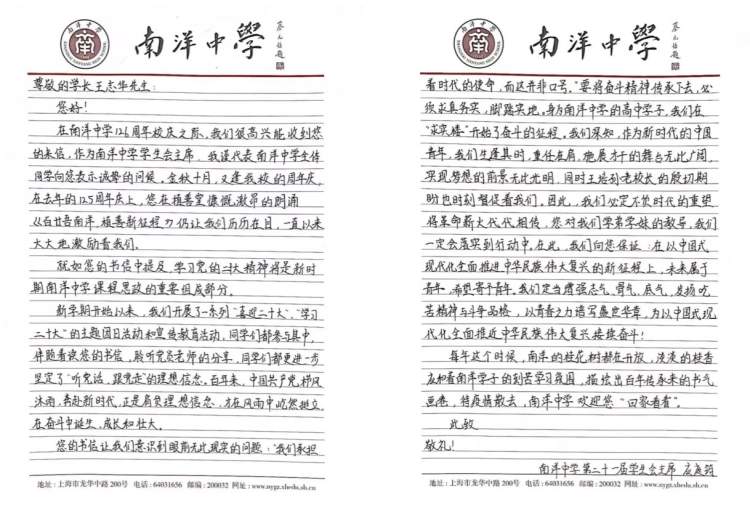 南洋中學
蔡元培題
尊敬的学长王志华先生:
您好!
在南洋中学126周年校庆之际,我们很高兴能收到您
的来信,作为南洋中学学生会主席,我谨代表南洋中学全体
同学向您表示诚挚的问候。金秋十月,又逢我校的周年庆,
在去年的125周年庆上,您在植善堂慷慨激昂的朗诵
《百廿吾南洋,植善新征程》仍让我们历历在目,一直以来
大大地激励着我们。
就如您的书信中提及,学习党的二十大精神将是新时
期南洋中学课程思政的重要组成部分。
新学期开始以来,我们开展了一系列"喜迎二十大"、"学习
二十大"的主题团日活动和宣传教育活动,同学们都参与其中,
伴随着读您的书信,聆听党员老师的分享,同学们都更进一步
坚定了"听党话,跟党走"的理想信念。百年来,中国共产党栉风
沐雨,奔赴新时代,正是肩负理想信念,才在风雨中屹然挺立,
在奋斗中诞生,成长和壮大。
您的书信让我们意识到眼前无比现实的问题:"我们承担
地址:上海市龙华中路200号 电话:64031656 邮编:200032 网址:www.nygz.xhedu.sh.cn
南洋中學
蔡元培題
着时代的使命,而这并非口号。"要将奋斗精神传承下去,必
须求真务实,脚踏实地。身为南洋中学的高中学子,我们在
"求实楼"开始了奋斗的征程,我们深知,作为新时代的中国
青年,我们生逢其时,重任在肩,施展才干的舞台无比广阔,
实现梦想的前景无比光明,同时王培孙老校长的殷切期
盼也时刻督促着我们。因此,我们必定不负时代的重望
将革命薪火代代相传,您对我们学弟学妹的教导,我们
一定会落实到行动中。在此,我们向您保证:在以中国式
现代化全面推进中华民族伟大复兴的新征程上,未来属于
青年,希望寄予青年。我们定当增强志气、骨气、底气,发扬吃
苦精神与斗争品格,以青春之力谱写盛世华章,为以中国式现
代化全面推进中华民族伟大复兴接续奋斗!
每年这个时候,南洋的桂花树都在开放,淡淡的桂香
应和着南洋学子的刻苦学习氛围,描绘出百年传承来的书气
画卷,待疫情散去,南洋中学欢迎您"回家看看"。
此致
敬礼!
南洋中学第二十一届学生会主席
地址:上海市龙华中路200号 电话:64031656 邮编:200032 网址:www.nygz.xhedu.sh.cn